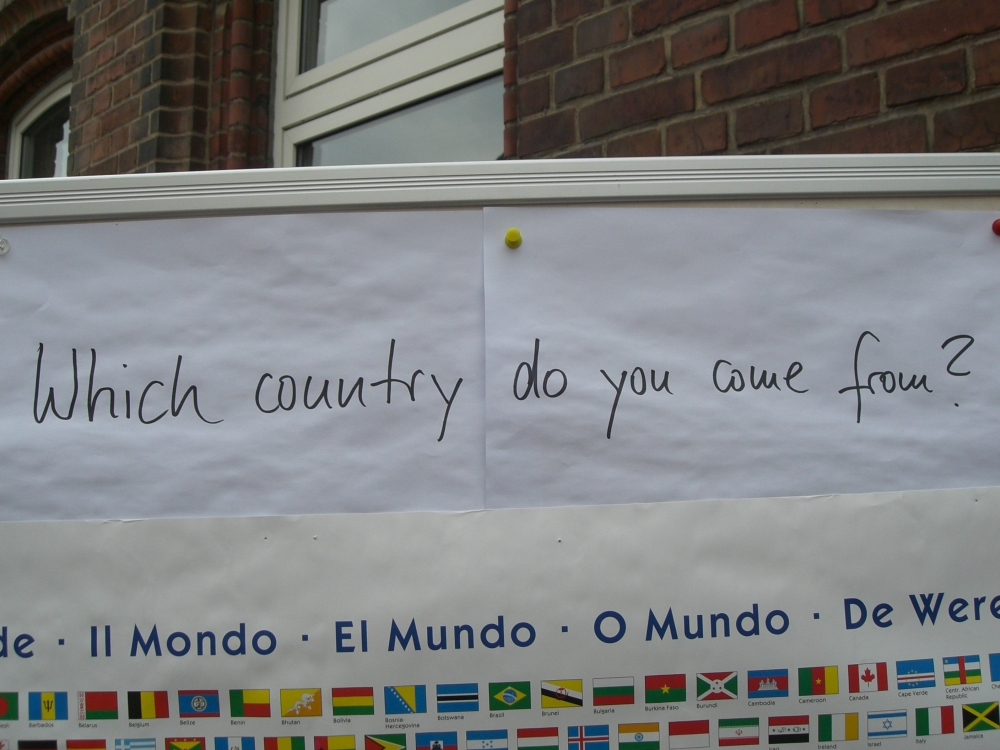 Which country do you come from?
de · Il Mondo · El Mundo · O Mundo · De Were
Barbados Belarus Belgium Belize Benin Bhutan Bolivia Bosnia Hercegovina Botswana Brazil Brunei Bulgaria Burkina Faso Burundi Cambodia Cameroon Canada Cape Verde Centr. African Republic Ch
Iran Iraq Ireland Israel Italy Jamaica